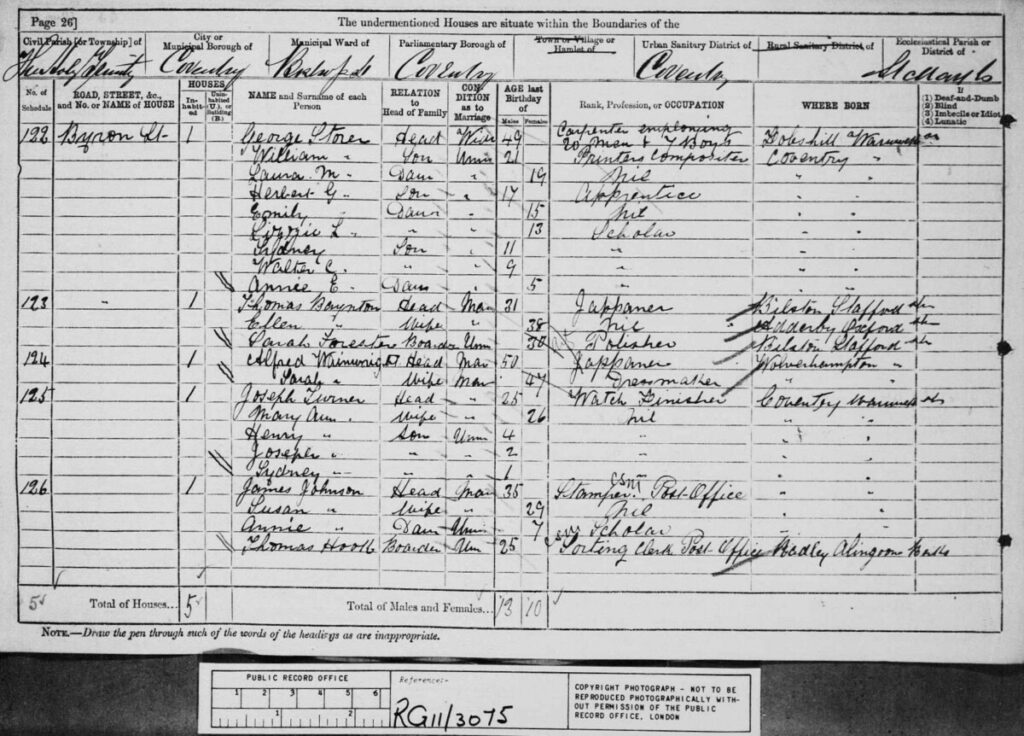 Page 26]
The undermentioned Houses are situate within the Boundaries of the
Civil Parish [or Township] of
City or Municipal Borough of
Municipal Ward of
Parliamentary Borough of
Town or Village or Hamlet of
Urban Sanitary District of
Rural Sanitary District of
Ecclesiastical Parish or District of
The Holy Trinity Coventry Coventry Coventry
No. of Schedule
ROAD, STREET, &c., and No. or NAME of HOUSE
HOUSES
Inhabited
Uninhabited (U.), or Building (B.)
NAME and Surname of each Person
RELATION to Head of Family
CONDITION as to Marriage
AGE last Birthday of
Males Females
Rank, Profession, or OCCUPATION
WHERE BORN
If
(1) Deaf-and-Dumb
(2) Blind
(3) Imbecile or Idiot
(4) Lunatic
122 Byron St 1 George Storer Head Widr 49 Carpenter employing 20 Men & 7 Boys Warwick
William " Son Unm 21 Printers Compositor Coventry "
Laura M. " Daur " 19 Nil " "
Herbert G. " Son " 17 Apprentice " "
Emily " Daur " 15 Nil " "
Lizzie L. " " " 13 Scholar " "
Sydney Son 11 " " "
Walter C. " " 9 " " "
Annie E. " Daur 5 " " "
123 " 1 Thomas Boynton Head Mar 31 Japanner Bilston Stafford
Ellen " Wife " 38 Nil Adderby Oxford
Sarah Forester Boarder Unm 30 Polisher Bilston Stafford
124 1 Alfred Wainwright Head Mar 50 Japanner Wolverhampton "
Sarah " Wife Mar 47 Dressmaker " "
125 1 Joseph Turner Head " 25 Watch Finisher Coventry Warwick
Mary Ann " Wife " 26 Nil " "
Henry " Son Unm 4 " "
Joseph " " " 2 " "
Sydney " " " 1 " "
126 1 James Johnson Head Mar 35 Stamper Post Office " "
Susan " Wife " 29 Nil " "
Annie " Daur Unm 7 Scholar " "
Thomas Boarder Unm 25 Sorting Clerk Post Office Bucks
5 Total of Houses... 5 Total of Males and Females... 13 10
NOTE.—Draw the pen through such of the words of the headings as are inappropriate.
PUBLIC RECORD OFFICE
1 2 3 4 5 6
1 2
Reference:-
RG11/3075
COPYRIGHT PHOTOGRAPH - NOT TO BE
REPRODUCED PHOTOGRAPHICALLY WITH-
OUT PERMISSION OF THE PUBLIC
RECORD OFFICE, LONDON